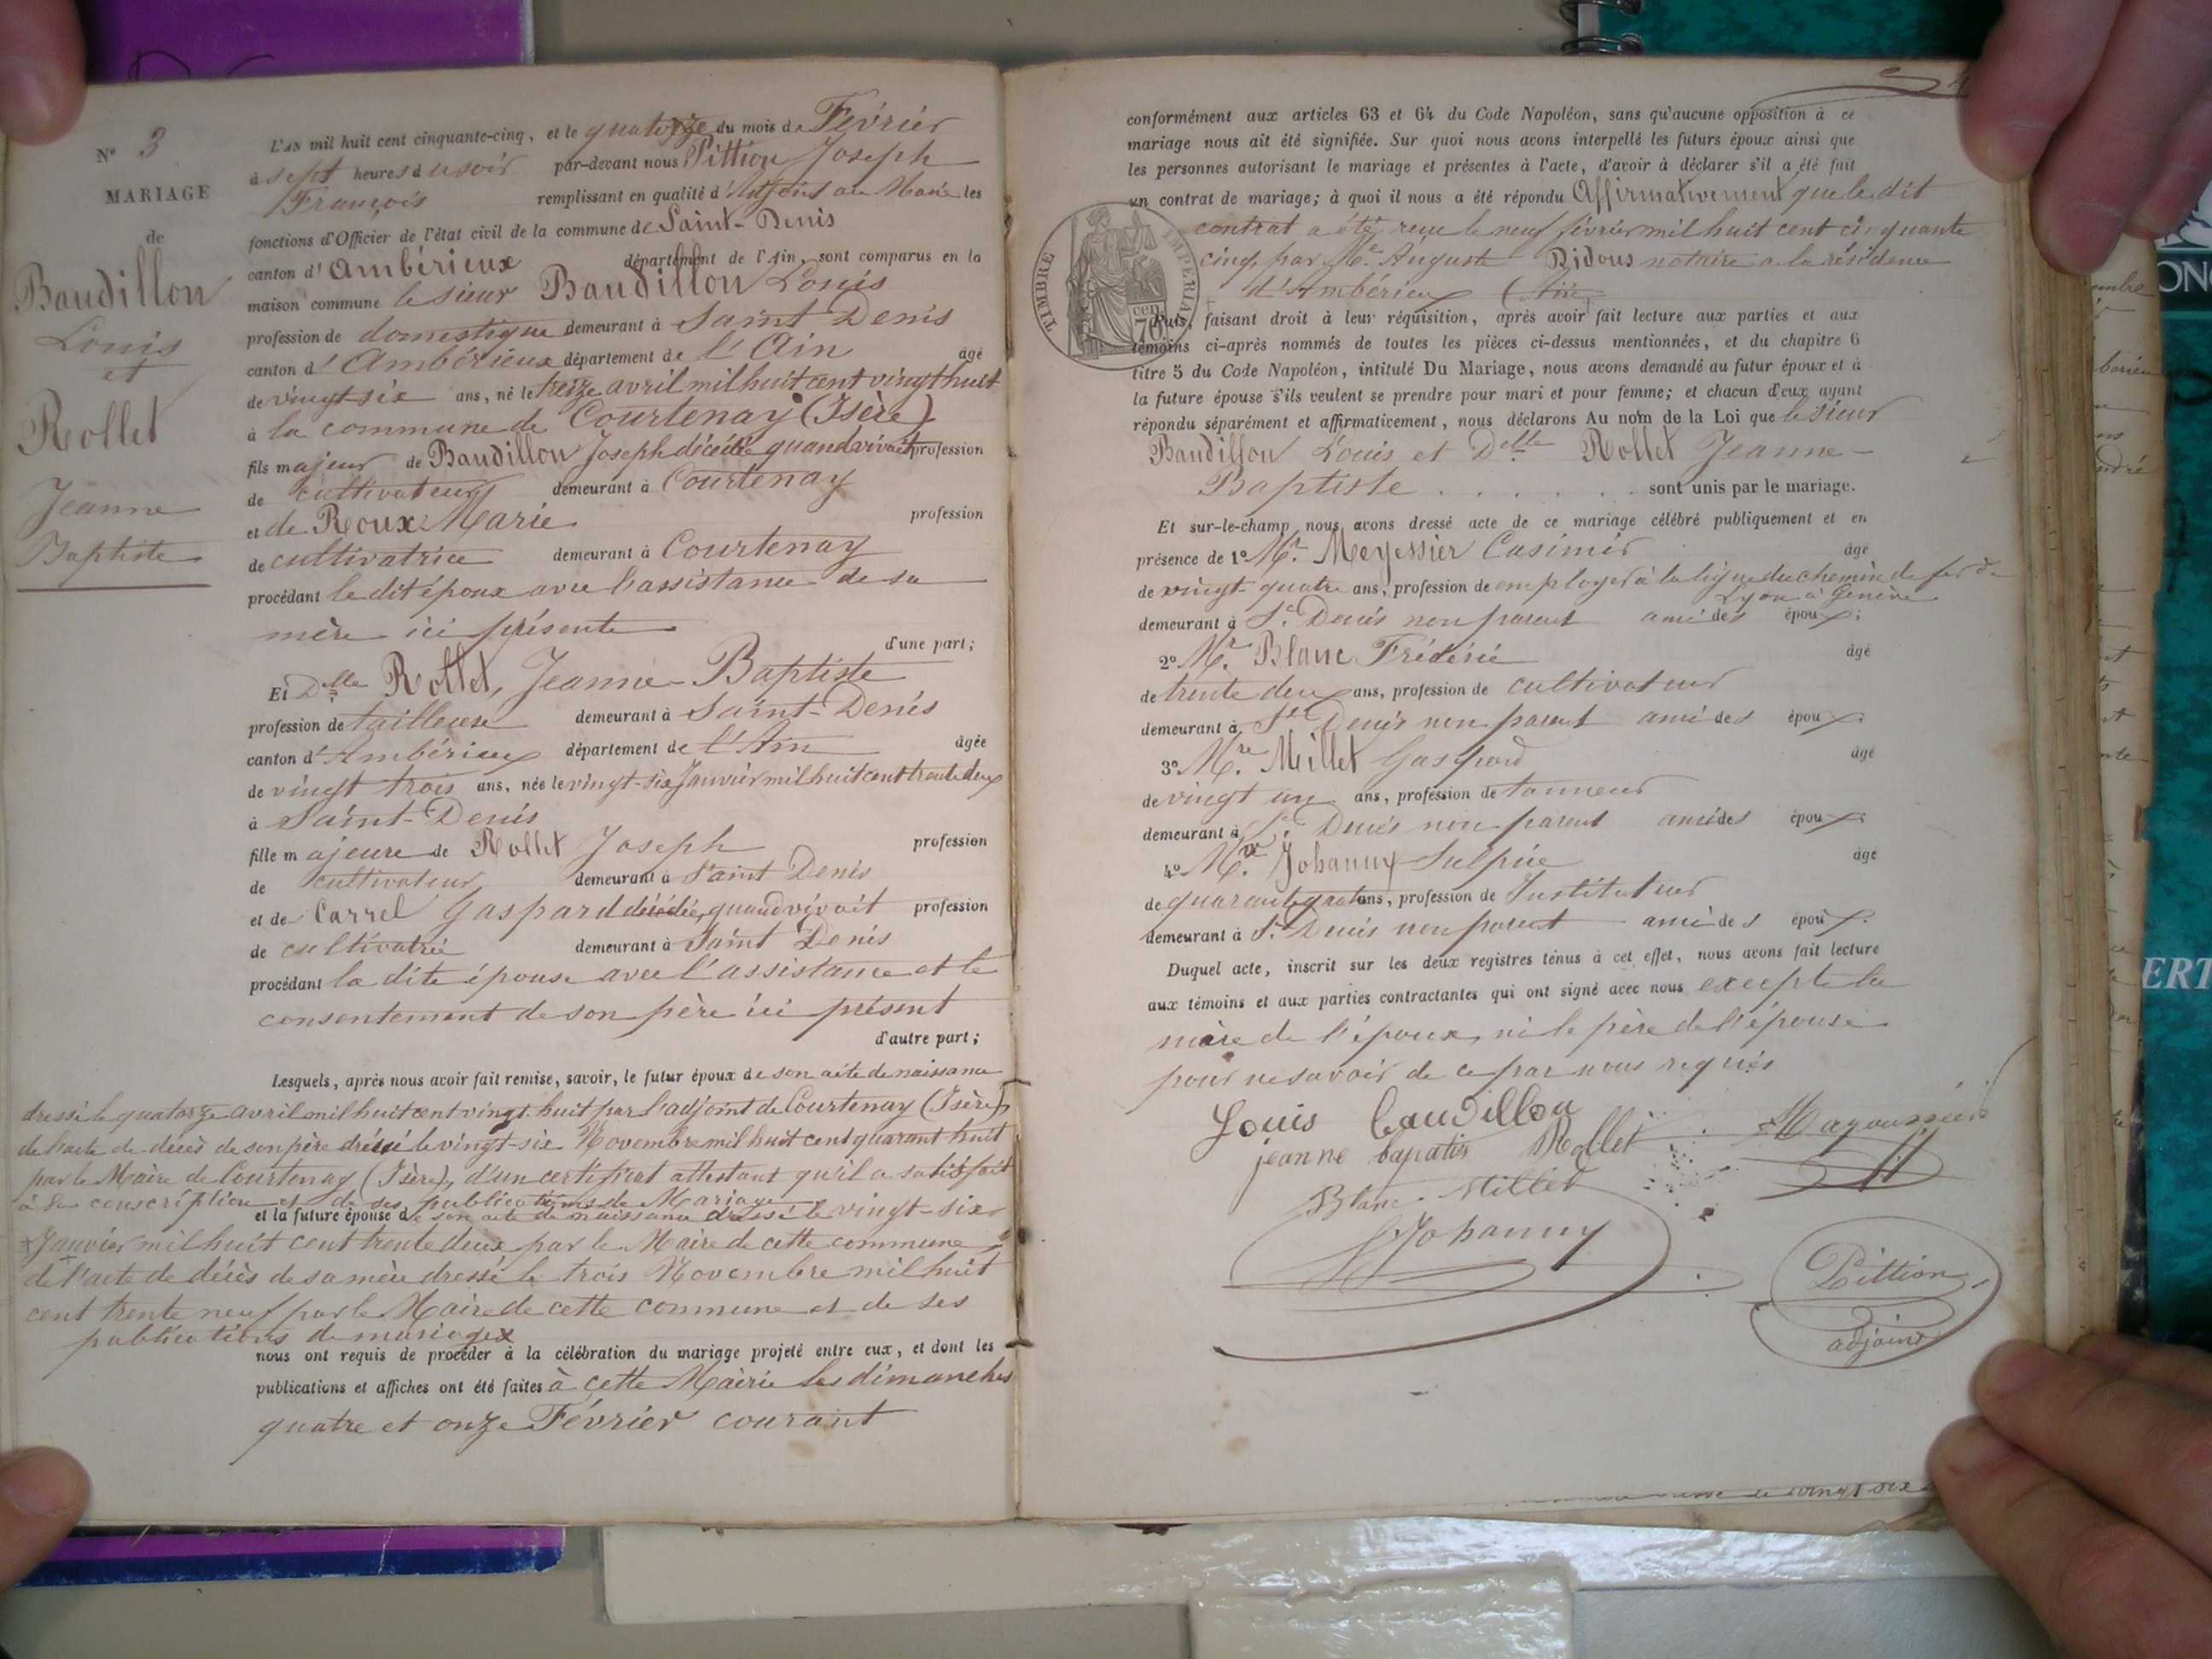 N° 3
MARIAGE
de
Baudillon
Louis
et
Rollet
Jeanne
Baptiste
L'AN mil huit cent cinquante-cinq, et le quatorze du mois de Février
à sept heures du soir par-devant nous Pittion Joseph
François remplissant en qualité d'Adjoint au Maire les
fonctions d'Officier de l'état civil de la commune de Saint-Denis
canton d'Ambérieux département de l'Ain, sont comparus en la
maison commune le sieur Baudillon Louis
profession de domestique demeurant à Saint Denis
canton d'Ambérieux département de l'Ain âgé
de vingt-six ans, né le treize avril mil huit cent vingt huit
à la commune de Courtenay (Isère)
fils majeur de Baudillon Joseph décédé quand vivait profession
de cultivateur demeurant à Courtenay
et de Roux Marie profession
de cultivatrice demeurant à Courtenay
procédant le dit époux avec l'assistance de sa
mère ici présente
d'une part;
Et Delle Rollet, Jeanne-Baptiste
profession de tailleuse demeurant à Saint-Denis
canton d'Ambérieux département de l'Ain âgée
de vingt trois ans, née le vingt-six Janvier mil huit cent trente deux
à Saint-Denis
fille majeure de Rollet Joseph profession
de cultivateur demeurant à Saint Denis
et de Carrel Gaspard décédée, quand vivait profession
de cultivatrie demeurant à Saint Denis
procédant la dite épouse avec l'assistance et le
consentement de son père ici présent
d'autre part;
Lesquels, après nous avoir fait remise, savoir, le futur époux de son acte de naissance
dressé le quatorze avril mil huit cent vingt-huit par l'adjoint de Courtenay (Isère)
de l'acte de décès de son père dressé le vingt-six Novembre mil huit cent quarant huit
par le Maire de Courtenay (Isère), d'un certificat attestant qu'il a satisfait
à la conscription et de ses publications de Mariage
et la future épouse de son acte de naissance dressé le vingt-six
Janvier mil huit cent trente deux par le Maire de cette commune
de l'acte de décès de sa mère dressé le trois Novembre mil huit
cent trente neuf par le Maire de cette commune et de ses
publications de mariages
nous ont requis de procéder à la célébration du mariage projeté entre eux, et dont les
publications et affiches ont été faites à cette Mairie les dimanches
quatre et onze Février courant
conformément aux articles 63 et 64 du Code Napoléon, sans qu'aucune opposition à ce
mariage nous ait été signifiée. Sur quoi nous avons interpellé les futurs époux ainsi que
les personnes autorisant le mariage et présentes à l'acte, d'avoir à déclarer s'il a été fait
un contrat de mariage; à quoi il nous a été répondu Affirmativement que le dit
contrat a été reçu le neuf février mil huit cent cinquante
cinq, par Me Auguste Didous notaire à la résidence
d'Ambérieux (Ain)
TIMBRE IMPERIAL
cen
70
Puis, faisant droit à leur réquisition, après avoir fait lecture aux parties et aux
témoins ci-après nommés de toutes les pièces ci-dessus mentionnées, et du chapitre 6
titre 5 du Code Napoléon, intitulé Du Mariage, nous avons demandé au futur époux et à
la future épouse s'ils veulent se prendre pour mari et pour femme; et chacun d'eux ayant
répondu séparément et affirmativement, nous déclarons Au nom de la Loi que le sieur
Baudillon Louis et Delle Rollet Jeanne-
Baptiste . . . . . . sont unis par le mariage.
Et sur-le-champ nous avons dressé acte de ce mariage célébré publiquement et en
présence de 1° Mr Meyessier Casimir âgé
de vingt-quatre ans, profession de employer à la ligne du chemin de fer de
Lyon à Genève
demeurant à St Denis non parent ami des époux;
2° Mr Blanc Frédéric âgé
de trente deux ans, profession de cultivateur
demeurant à St Denis non parent ami des époux;
3° Mre Millet Gaspard âgé
de vingt un ans, profession de tanneur
demeurant à St Denis non parent ami des époux;
4° Mr Johanny Sulpice âgé
de quarante quatre ans, profession de Instituteur
demeurant à St Denis non parent ami des époux.
Duquel acte, inscrit sur les deux registres tenus à cet effet, nous avons fait lecture
aux témoins et aux parties contractantes qui ont signé avec nous excepté la
mère de l'époux, ni le père de l'épouse
pour ne savoir de ce par nous requis
Louis Baudillon
jeanne bapatis Rollet
Blanc Millet
Johanny
Pittion
adjoint